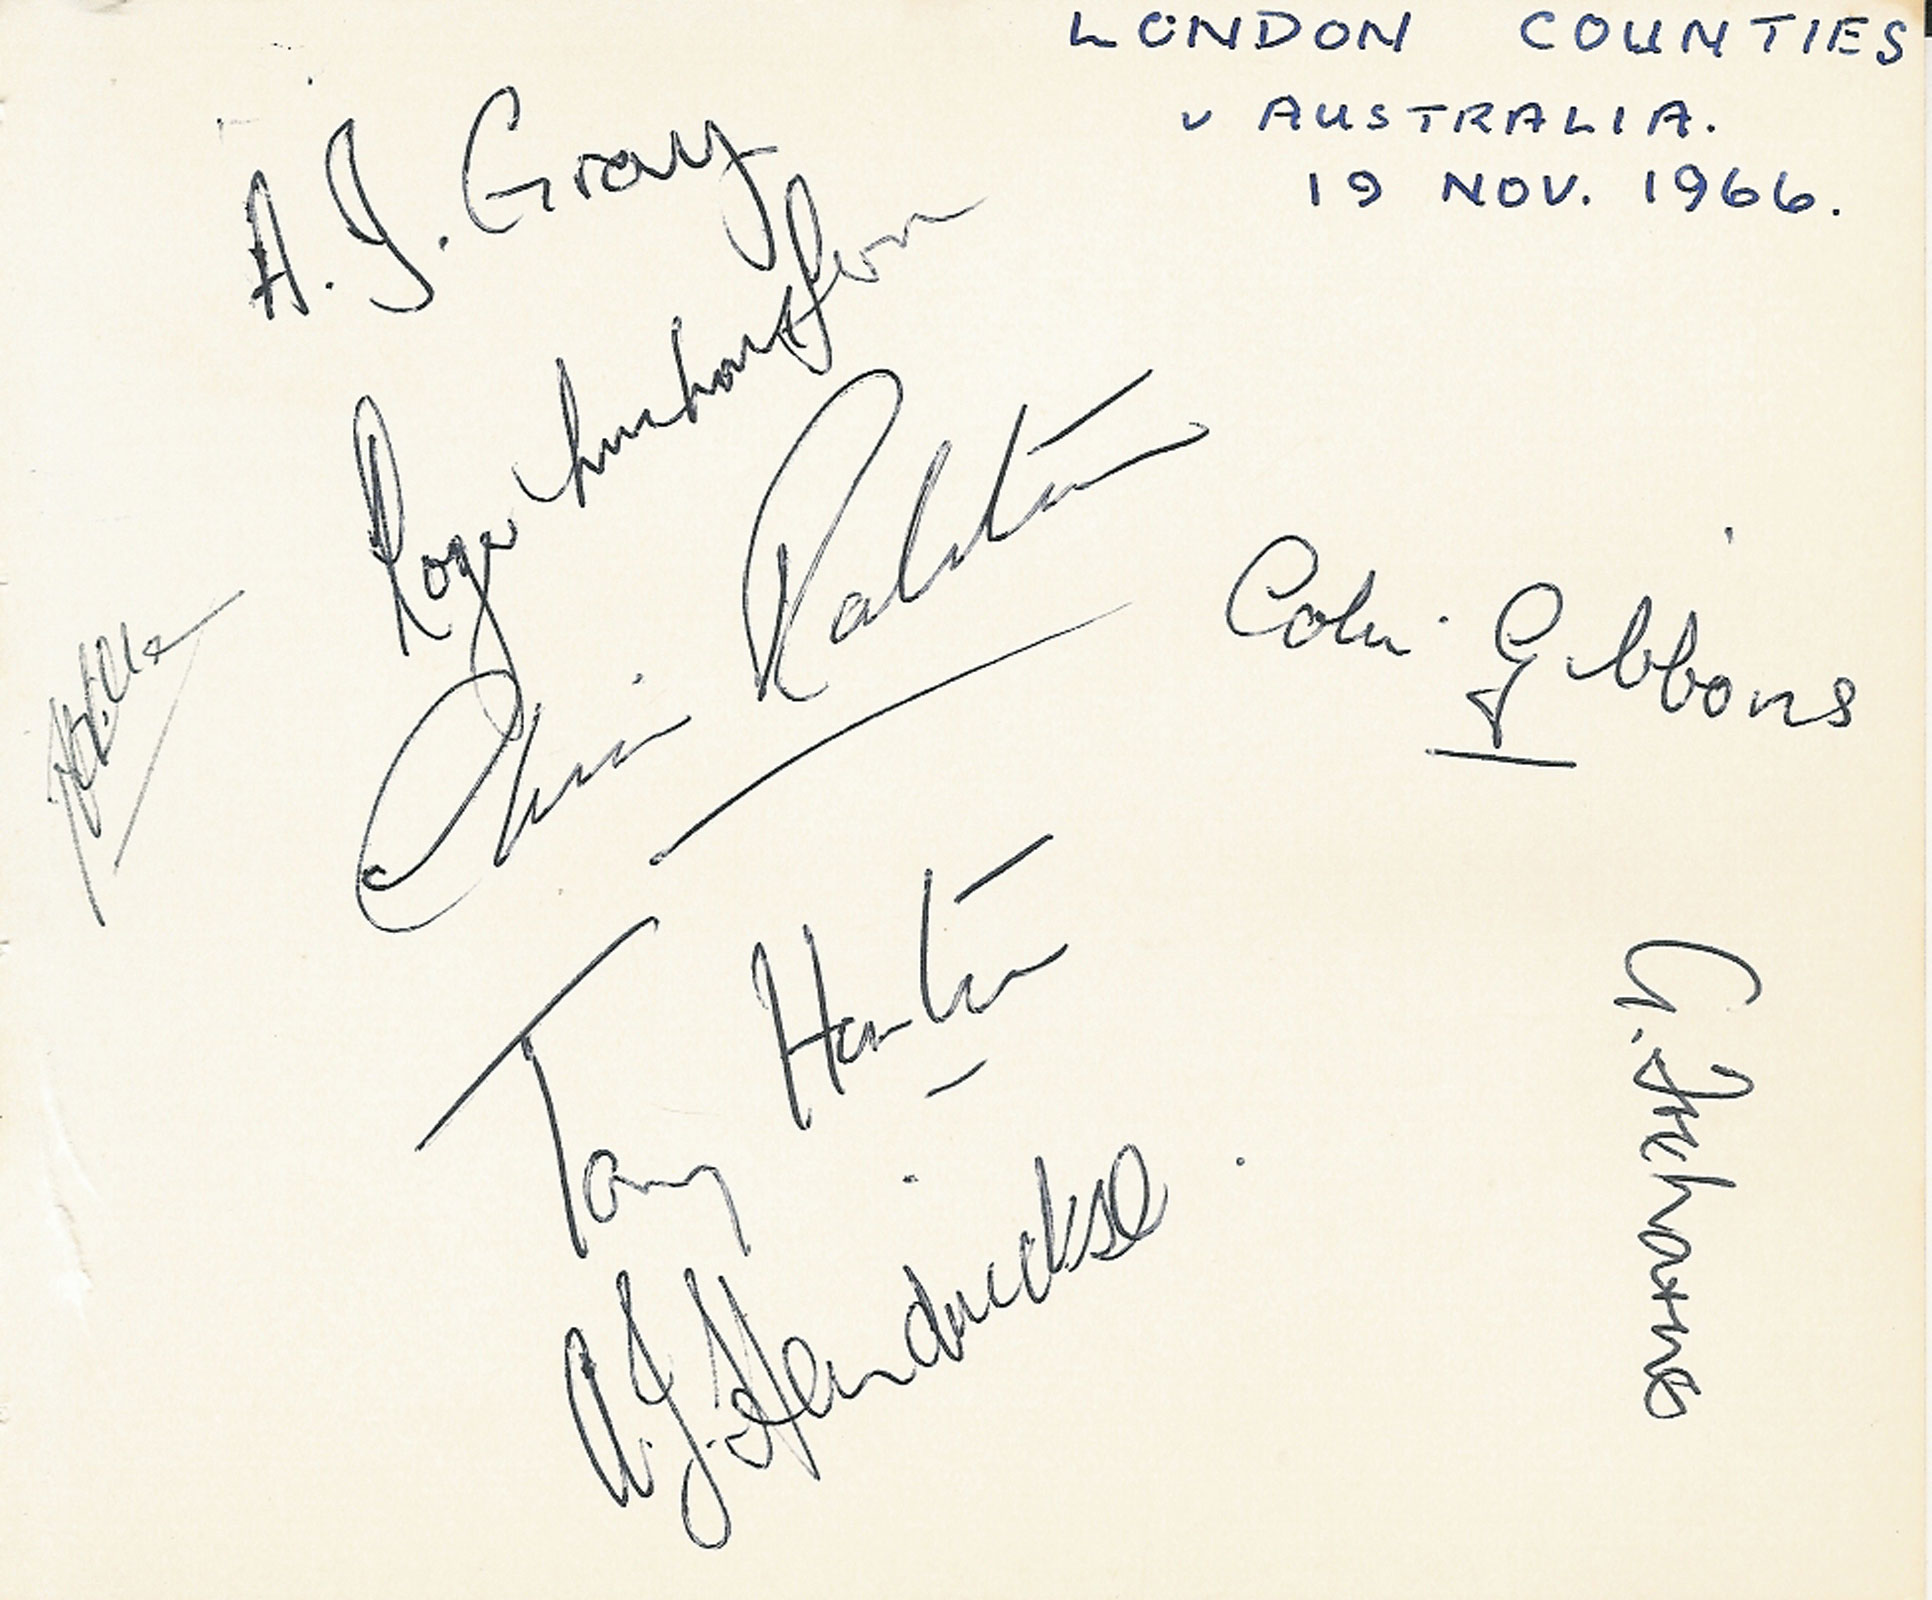 LONDON COUNTIES
v AUSTRALIA.
19 NOV. 1966.
A. J. Gray
Roger
Chris Ralston
Colin Gibbons
Tony
A. J. Hendrickse